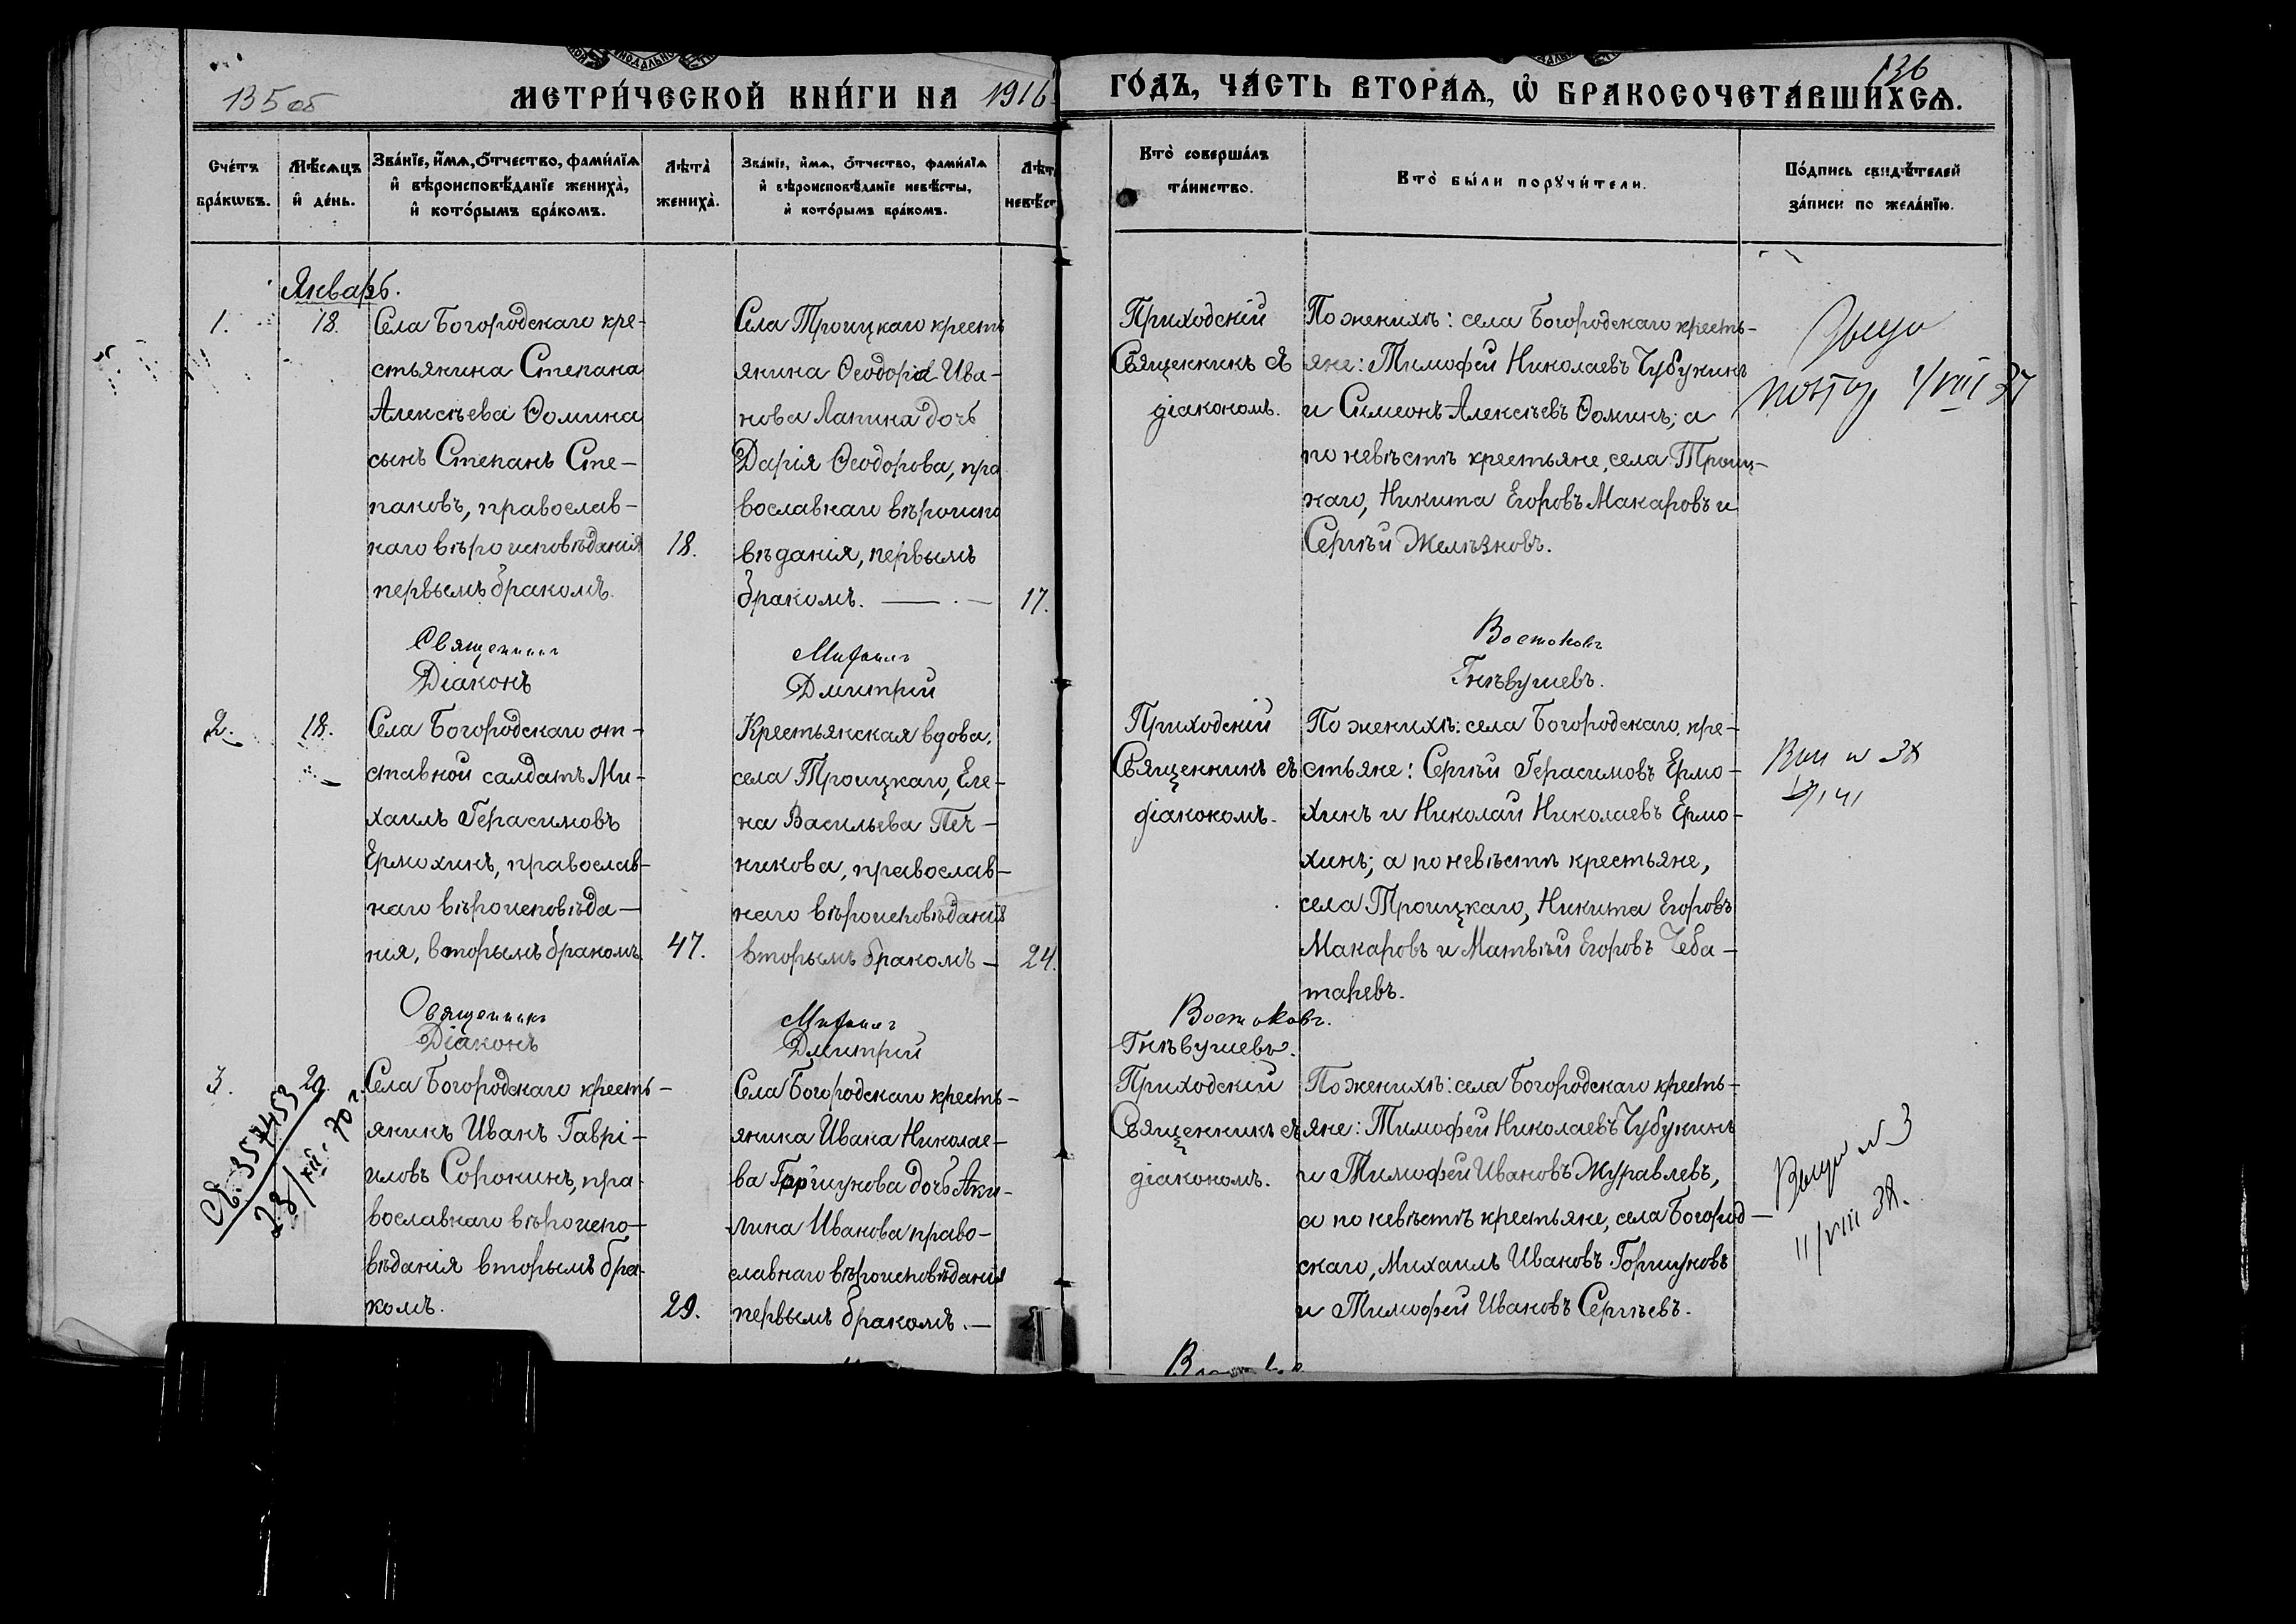 135 об
МЕТРИ́ЧЕСКОЙ КНИ́ГИ НА 1916
ГОДЪ, ЧА́СТЬ ВТОРА́Ѧ, Ѡ БРАКОСОЧЕТА́ВШИХСѦ.
136
Сче́тъ бра́кѡвъ.
Мѣ́сѧцъ и де́нь.
Зва́нїе, и́мѧ, ѻ́тчество, фами́лїѧ
и вѣроисповѣ́данїе жениха̀,
и кото́рымъ бра́комъ.
Лѣта̀ жениха̀.
Зва́нїе, и́мѧ, ѻ́тчество, фами́лїѧ
и вѣроисповѣ́данїе невѣ́сты,
и кото́рымъ бра́комъ.
Лѣт
невѣст
Кто̀ соверша́лъ
та́инство.
Кто̀ бы́ли порꙋчи́тели.
По́дпись свидѣ́телей
за́писи по жела́нїю.
Январь.
1.
18.
Села Богородскаго кре-
стьянина Степана
Алексѣева Ѳомина
сынъ Степанъ Сте-
пановъ, православ-
наго вѣроисповѣданія
первымъ бракомъ.
18.
Села Троицкаго кресть
янина Ѳеодора Ива-
нова Лапина дочь
Дарія Ѳеодорова, пра
вославнаго вѣроиспо
вѣданія, первымъ
бракомъ.
17.
Приходскій
Священникъ съ
діакономъ.
По женихѣ: села Богородскаго кресть-
яне: Тимофей Николаевъ Чубукинъ
и Симеонъ Алексѣевъ Ѳоминъ; а
по невѣстѣ крестьяне, села Троиц-
каго, Никита Егоровъ Макаровъ и
Сергѣй Желѣзновъ.
1/VIII 37
Священникъ Михаилъ Востоковъ
Діаконъ Дмитрій Гнѣвушевъ.
2.
18.
Села Богородскаго от-
ставной салдатъ Ми-
хаилъ Герасимовъ
Ермохинъ, православ-
наго вѣроисповѣда-
нія, вторымъ бракомъ.
47.
Крестьянская вдова,
села Троицкаго, Еле-
на Васильева Печ-
никова, православ-
наго вѣроисповѣданія
вторымъ бракомъ-
24.
Приходскій
Священникъ съ
діакономъ.
По женихѣ: села Богородскаго, кре-
стьяне: Сергѣй Герасимовъ Ермо-
хинъ и Николай Николаевъ Ермо-
хинъ; а по невѣстѣ крестьяне,
села Троицкаго, Никита Егоровъ
Макаровъ и Матвѣй Егоровъ Чеба-
таревъ.
Священникъ Михаилъ Востоковъ.
Діаконъ Дмитрій Гнѣвушевъ.
3.
29.
Села Богородскаго кресть-
янинъ Иванъ Гаврі-
иловъ Сорокинъ, пра-
вославнаго вѣроиспо-
вѣданія вторымъ бра-
комъ.
29.
Села Богородскаго кресть-
янина Ивана Николае-
ва Горшунова дочь Аки-
лина Иванова право-
славнаго вѣроисповѣданія
первымъ бракомъ.-
Приходскій
Священникъ съ
діакономъ.
По женихѣ: села Богородскаго кресть-
яне: Тимофей Николаевъ Чубукинъ
и Тимофей Ивановъ Журавлевъ,
а по невѣстѣ крестьяне, села Богород-
скаго, Михаилъ Ивановъ Горшуновъ
и Тимофей Ивановъ Сергѣевъ.
11/VIII 38.
357453
23/XII-70 г.